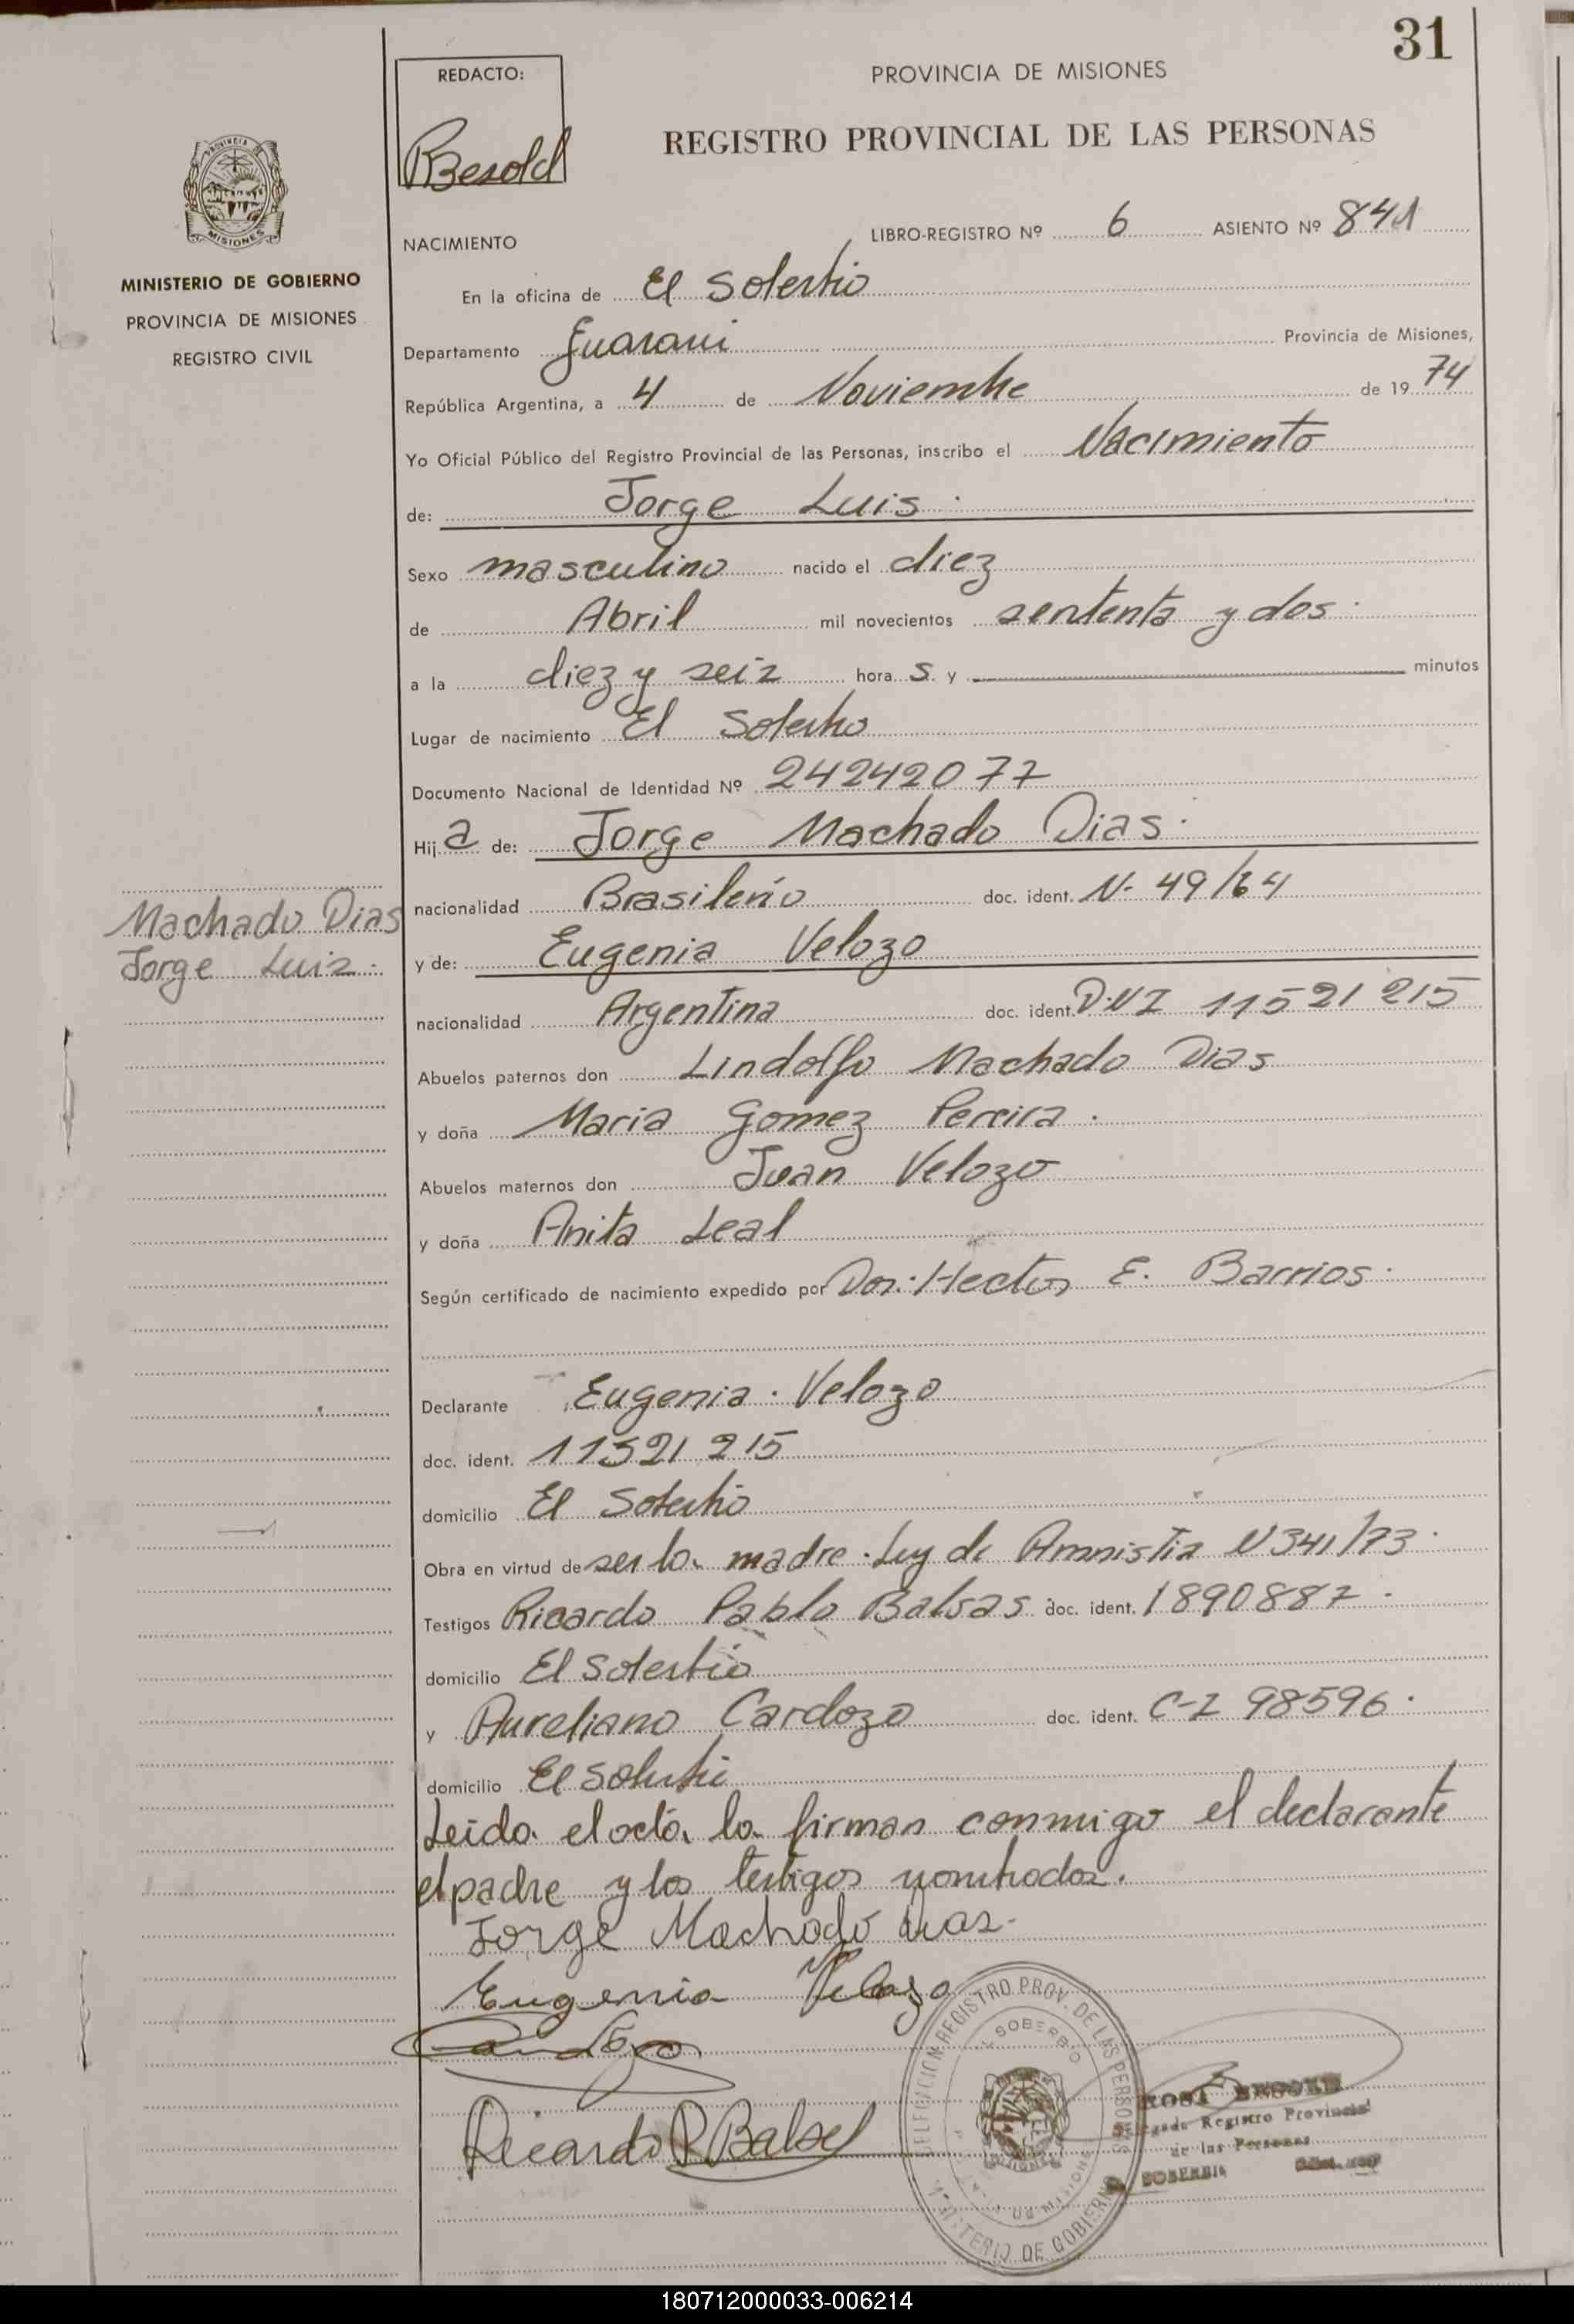 31
REDACTO:
Besold
PROVINCIA DE MISIONES
REGISTRO PROVINCIAL DE LAS PERSONAS
MISIONES
MINISTERIO DE GOBIERNO
PROVINCIA DE MISIONES
REGISTRO CIVIL
NACIMIENTO
LIBRO-REGISTRO Nº 6 ASIENTO Nº 841
En la oficina de El Soberbio
Departamento Guarani Provincia de Misiones,
República Argentina, a 4 de Noviembre de 1974
Yo Oficial Público del Registro Provincial de las Personas, inscribo el Nacimiento
de: Jorge Luis
Sexo masculino nacido el diez
de Abril mil novecientos sententa y dos
a la diez y seiz hora s y minutos
Lugar de nacimiento El Soberbio
Documento Nacional de Identidad Nº 24242077
Hij a de: Jorge Machado Dias
nacionalidad Brasileño doc. ident. N- 49/64
Machado Dias
Jorge Luiz
y de: Eugenia Velozo
nacionalidad Argentina doc. ident. D.N.I 11521215
Abuelos paternos don Lindolfo Machado Dias
y doña Maria Gomez Pereira
Abuelos maternos don Juan Velozo
y doña Anita Leal
Según certificado de nacimiento expedido por Don: Hector E. Barrios
Declarante Eugenia Velozo
doc. ident. 11521215
domicilio El Soberbio
Obra en virtud de ser la madre. Ley de Amnistia N 341/73
Testigos Ricardo Pablo Balsas doc. ident. 1890887
domicilio El Soberbio
y Aureliano Cardozo doc. ident. C-I 98596
domicilio El Soberbio
Leida el acta, la firman conmigo el declarante
el padre y los testigos nombrados.
Jorge Machado Dias
Eugenia Velozo
Cardozo
Ricardo P Balsas
DELEGACION REGISTRO PROV. DE LAS PERSONAS
EL SOBERBIO
MISIONES
MINISTERIO DE GOBIERNO
Delegado Registro Provincial
de las Personas
SOBERBIO
180712000033-006214